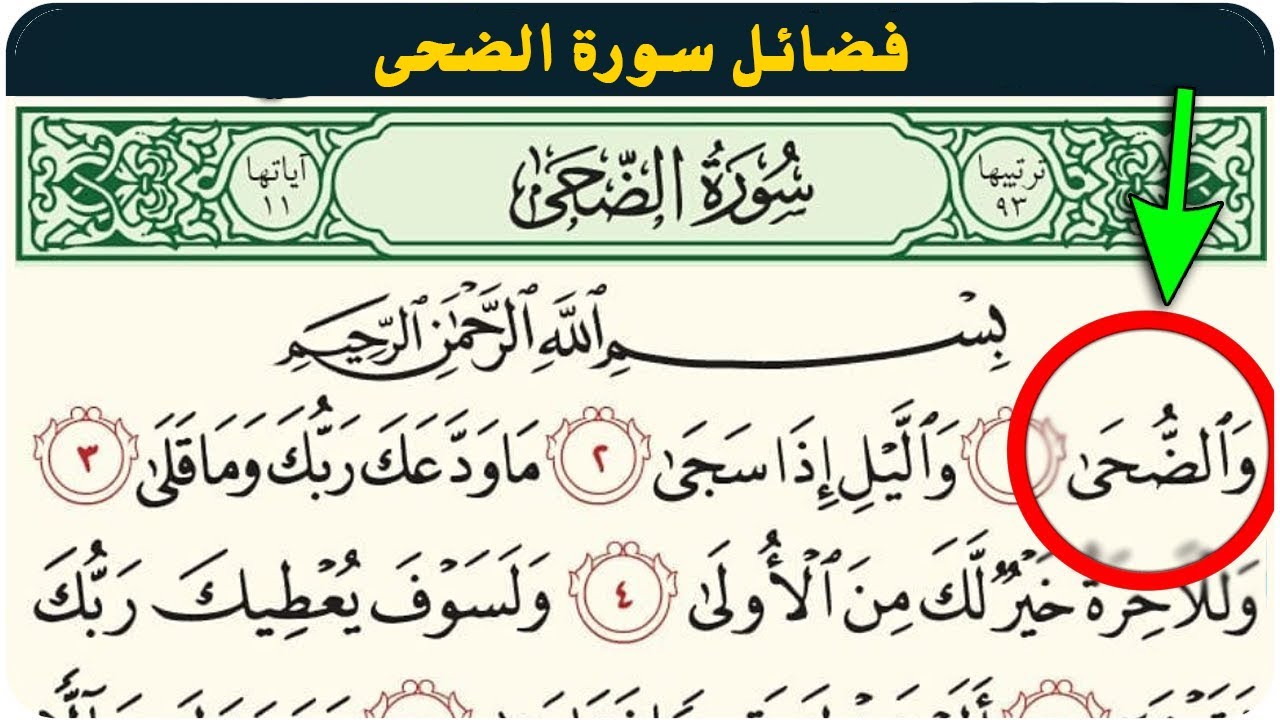 فضائل سورة الضحى
ترتيبها ٩٣ سُورَةُ الضُّحَىٰ آياتها ١١
بِسْمِ ٱللَّهِ ٱلرَّحْمَٰنِ ٱلرَّحِيمِ
وَٱلضُّحَىٰ وَٱلَّيْلِ إِذَا سَجَىٰ ٢ مَا وَدَّعَكَ رَبُّكَ وَمَا قَلَىٰ ٣
وَلَلْأَخِرَةُ خَيْرٌ لَّكَ مِنَ ٱلْأُولَىٰ ٤ وَلَسَوْفَ يُعْطِيكَ رَبُّكَ